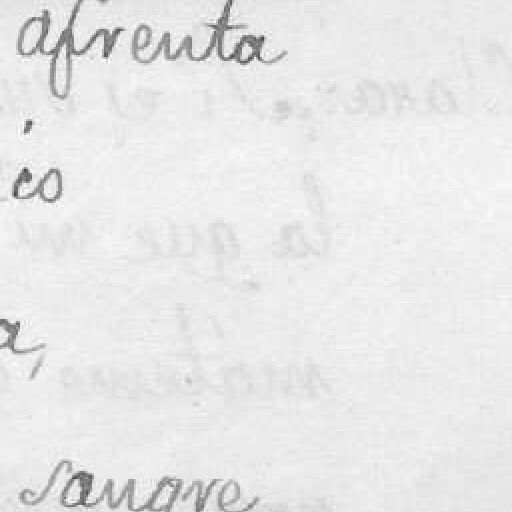 afrenta
ico
a,
sangre